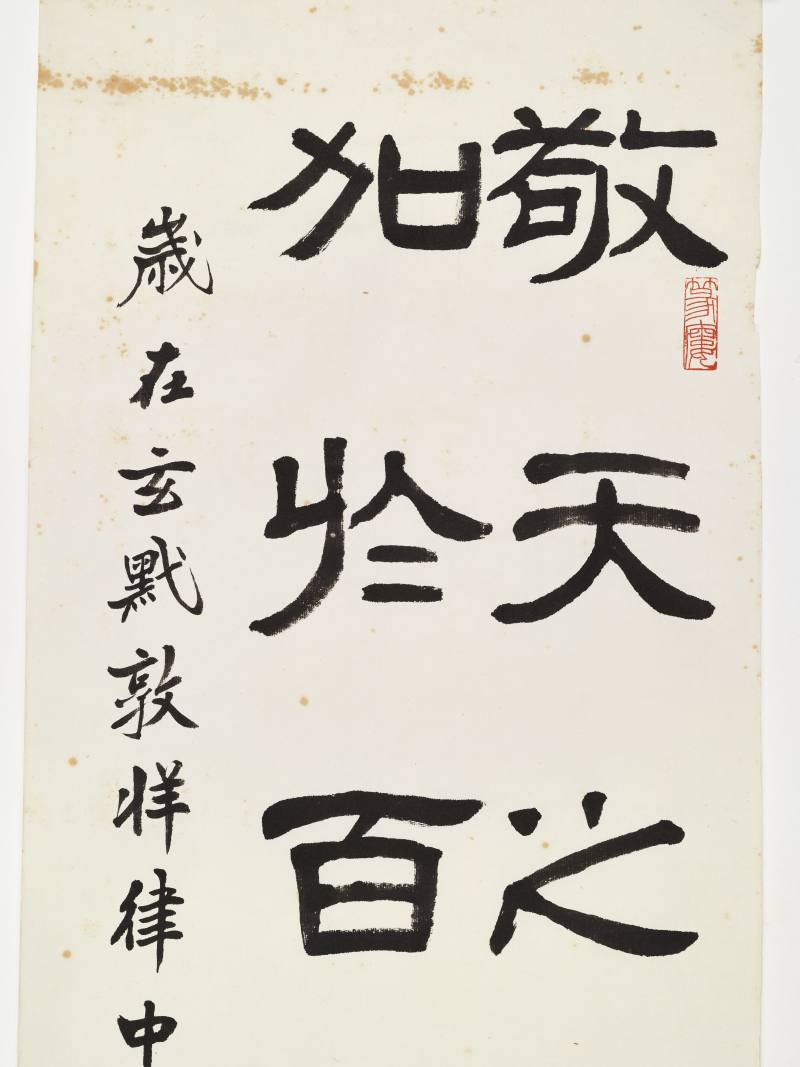 敬天之
加於百
歲在玄黓敦牂律中